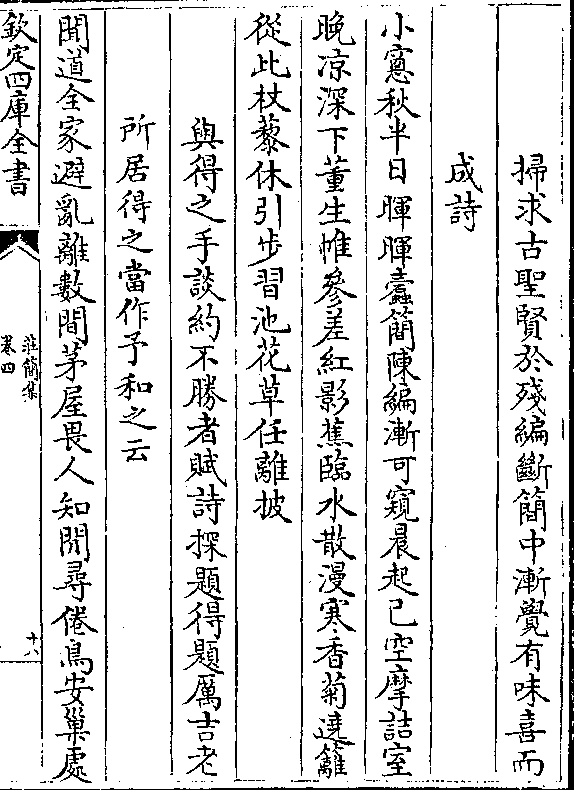 掃求古聖賢於殘編斷簡中漸覺有味喜而
成詩
小窻秋半日暉暉蠧簡陳編漸可窺晨起已空摩詰室
晚凉深下董生帷參差紅影蕉臨水散漫寒香菊遶籬
從此杖藜休引步習池花草任離披
與得之手談約不勝者賦詩探題得題厲吉老
所居得之當作予和之云
聞道全家避亂離數間茅屋畏人知閒尋倦鳥安巢處
欽定四庫全書
莊簡集
卷四
十八